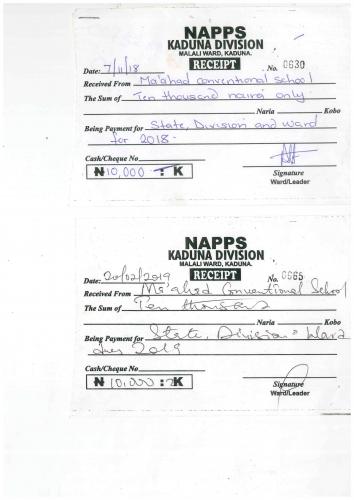 NAPPS
KADUNA DIVISION
MALALI WARD, KADUNA.
Date: 7/11/18 RECEIPT No. 0630
Received From Ma'ahad conventional school
The Sum of Ten thousand naira only
Naria Kobo
Being Payment for State, Division and ward
for 2018.
Cash/Cheque No
₦10,000 : K
Signature
Ward/Leader
NAPPS
KADUNA DIVISION
MALALI WARD, KADUNA.
Date: 20/02/2019 RECEIPT No. 0665
Received From Ma'ahad Conventional School
The Sum of Ten thousand
Naria Kobo
Being Payment for State, Division & Ward
2019
Cash/Cheque No
₦ 10,000 : K
Signature
Ward/Leader